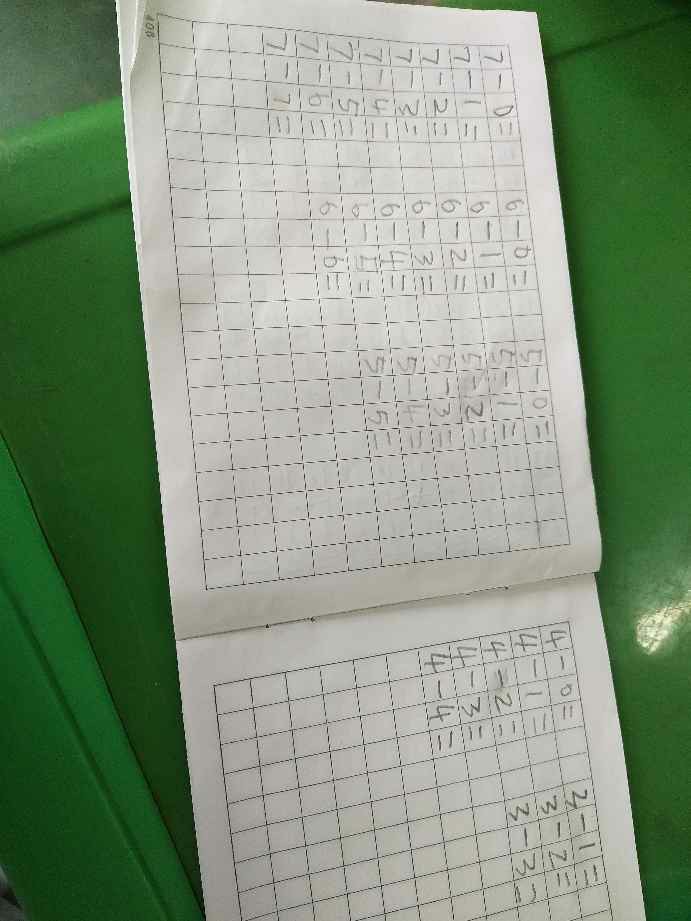 7-0= 6-0= 5-0=
7-1= 6-1= 5-1=
7-2= 6-2= 5-2=
7-3= 6-3= 5-3=
7-4= 6-4= 5-4=
7-5= 6-5= 5-5=
7-6= 6-6=
7-7=
4-0= 3-1=
4-1= 3-2=
4-2= 3-3=
4-3=
4-4=